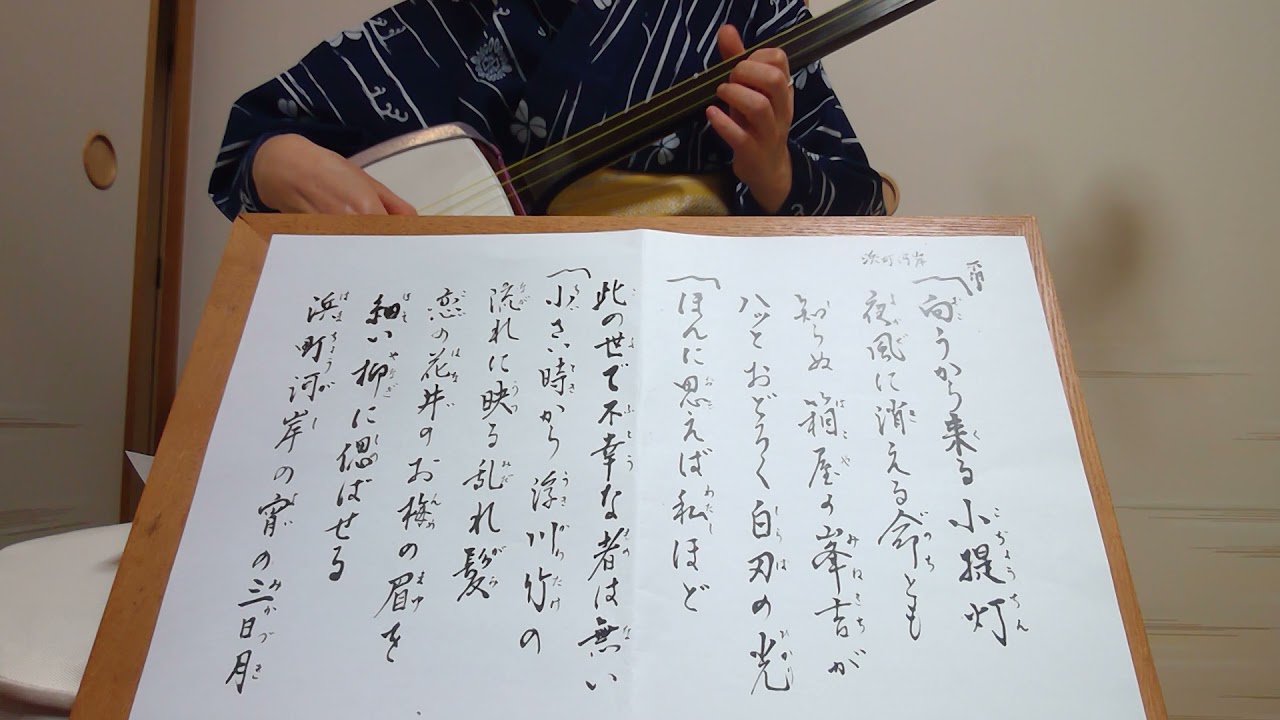 浜町河岸
向うから来る小提灯
夜風に消える命とも
知らぬ箱屋の峯吉が
ハッとおどろく白刃の光
ほんに思えば私ほど
此の世で不幸な者は無い
小さい時から浮川竹の
流れに映る乱れ髪
恋の花井のお梅の眉を
細い柳に偲ばせる
浜町河岸の宵の三日月